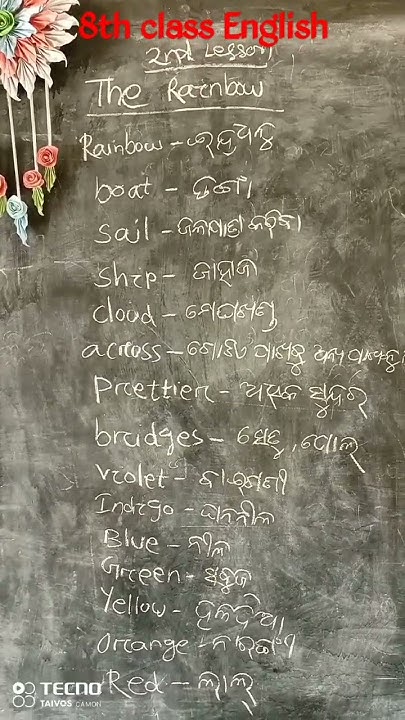 8th class English
2nd Lesson
The Rainbow
Rainbow - ଇନ୍ଦ୍ରଧନୁ
boat - ଡଙ୍ଗା
sail - ଜଳଯାତ୍ରା କରିବା
Ship - ଜାହାଜ
cloud - ମେଘଖଣ୍ଡ
across - ଗୋଟିଏ ପାଖରୁ ଅନ୍ୟ ପାଖକୁ
Prettier - ଅଧିକ ସୁନ୍ଦର
bridges - ସେତୁ, ପୋଲ୍
violet - ବାଇଗଣୀ
Indigo - ଘନନୀଳ
Blue - ନୀଳ
Green - ସବୁଜ
Yellow - ହଳଦିଆ
Orange - ନାରଙ୍ଗୀ
Red - ଲାଲ୍
TECNO
TAIVOS CAMON